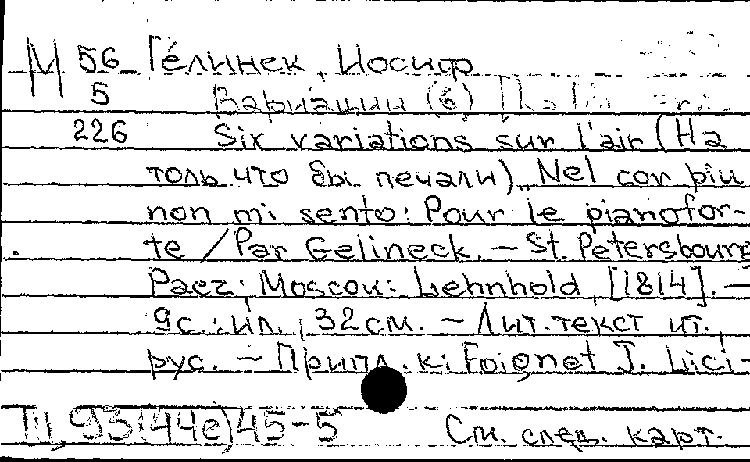 М 56 Гелинек, Иосиф
5 Вариации (6)
226 Six variations sur l'air (На
толь что бы печали) „Nel cor piu
non mi sento: Pour le pianofor-
te / Par Gelineck. – St. Petersbourg
Paez; Moscou: Lehnhold, [1814]. –
9с.: ил., 32см. – Лит. текст ит.,
рус. – Припл. к: Foignet J. Lici-
93(44е)45-5 См. след. карт.